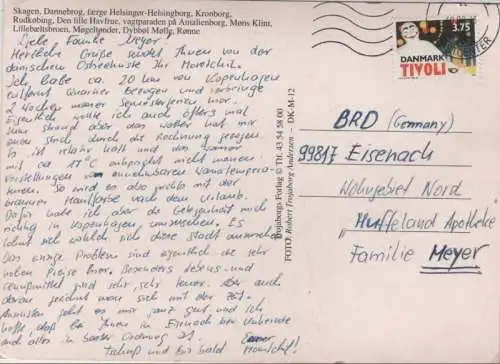 Skagen, Dannebrog, færge Helsingør-Helsingborg, Kronborg,
Rudkøbing, Den lille Havfrue, vagtparaden på Amalienborg, Møns Klint,
Lillebæltsbruen, Møgeltønder, Dybbøl Mølle, Rønne
Liebe Familie Meyer!
Herzliche Grüße sendet Ihnen von der
dänischen Ostseeküste Ihr
Ich habe ca. 20 km von Kopenhagen
entfernt Quartier bezogen und verbringe
2 Wochen meiner Semesterferien hier.
Eigentlich wollte ich auch öfters mal
zum Strand aber das Wetter hat mir
einen Strich durch die Rechnung gezogen.
Es ist relativ kalt und das Wasser
mit ca. 17°C entspricht nicht meinen
Vorstellungen von annehmbaren
So wird es also nichts mit der
braunen Hautfarbe nach dem Urlaub.
Dafür habe ich aber die Gelegenheit mich
richtig in Kopenhagen umzusehen. Es
lohnt sich wirklich sich diese Stadt anzusehen.
Das einzige Problem sind eigentlich die sehr
hohen Preise hier. Besonders Lebens- und
Genußmittel sind sehr, sehr teuer. Aber auch
daran gewöhnt man sich mit der Zeit.
Ansonsten geht es mir ganz gut und ich
hoffe, daß bei Ihnen in Eisenach
auch alles in bester Ordnung ist.
Tschüß und bis bald
Trojaborgs Forlag © Tlf. 43 54 58 00
FOTO: Robert Trojaborg Andersen – DK-M-12
3.75
DANMARK
TIVOLI
BRD (Germany)
99817 Eisenach
Wohngebiet Nord
"Huffeland Apotheke"
Familie Meyer